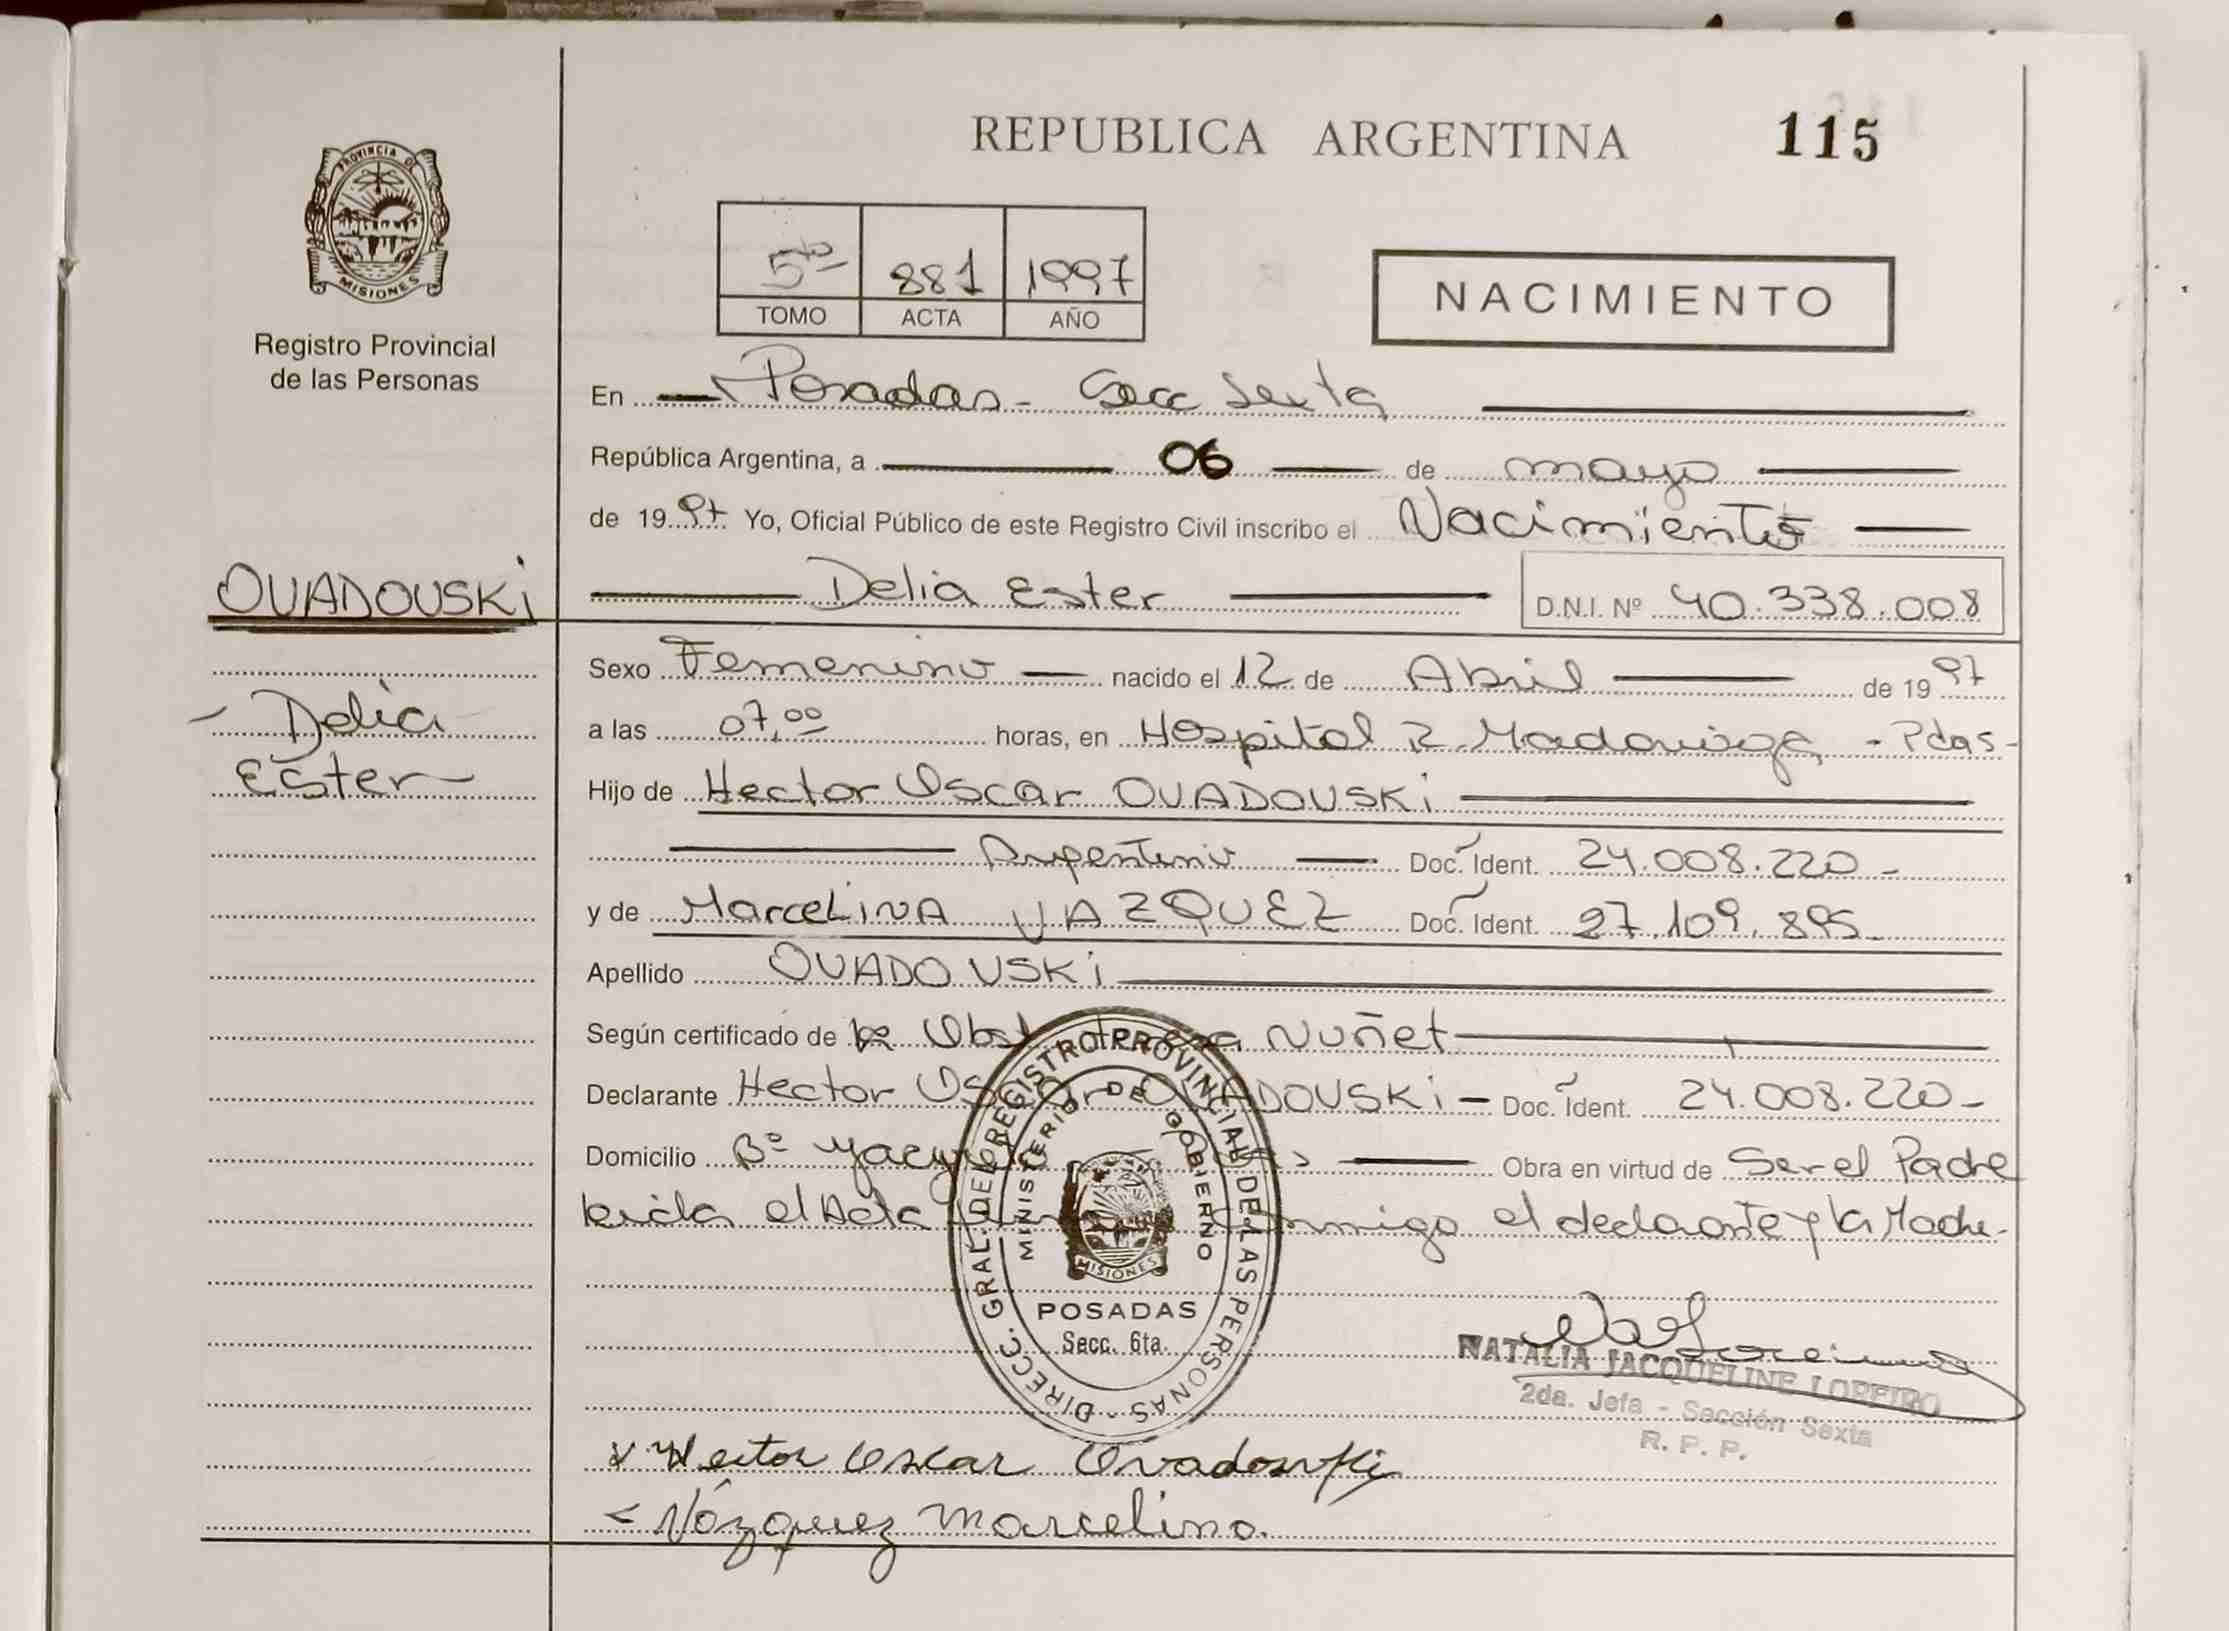 REPUBLICA ARGENTINA 115
PROVINCIA DE
MISIONES
Registro Provincial
de las Personas
5to 881 1997
TOMO ACTA AÑO
NACIMIENTO
En Posadas - Secc Sexta
República Argentina, a 06 de mayo
de 1997 Yo, Oficial Público de este Registro Civil inscribo el Nacimiento
OVADOVSKi
Delia Ester D.N.I. Nº 40.338.008
Sexo Femenino nacido el 12 de Abril de 1997
- Delia
Ester -
a las 07,00 horas, en Hospital R. Madariaga - Pdas -
Hijo de Hector Oscar OVADOVSKi
Argentino Doc. Ident. 24.008.220 -
y de MarceLiNA VAZQUEZ Doc. Ident. 27.109.895 -
Apellido OVADOVSKi
Según certificado de la Obst Nuñet
Declarante Hector Oscar OVADOVSKi - Doc. Ident. 24.008.220 -
Domicilio Bº Obra en virtud de Ser el Padre
Leida el Acta conmigo el declarante y la Madre -
DIRECC. GRAL. DEL REGISTRO PROVINCIAL DE LAS PERSONAS -
MINISTERIO DE GOBIERNO
MISIONES
POSADAS
Secc. 6ta.
NATALIA JACQUELINE LOREIRO
2da. Jefa - Sección Sexta
R. P. P.
Hector Oscar Ovadovski
Vázquez Marcelina.